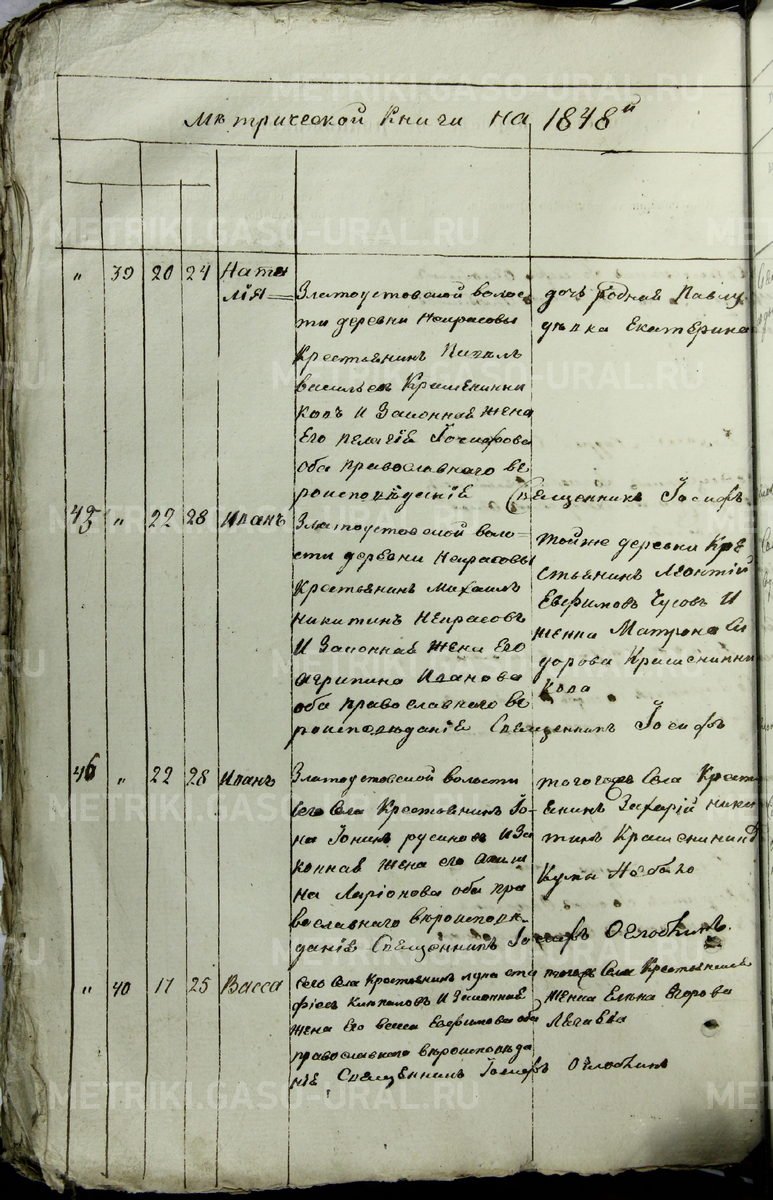 Метрической Книги на 1848й
" 39 20 24 Ната
лія
Златоустовской волос
ти деревни Некрасовы
Крестьянин
васильев Крашенинни
ковъ и Законная жена
его пелагія
оба православнаго ве
роисповѣданія Священникъ Іосифъ
дочь родная
дѣвка Екатерина
45 " 22 28 Иванъ
Златоустовской воло
сти деревни Некрасовы
Крестьянинъ Михаилъ
никитинъ Некрасовъ
И Законная жена Его
Агрипина Иванова
оба православнаго ве
роисповѣданія Священникъ Іосифъ
тойже деревни Кре
стьянинъ Леонтій
Евфимовъ Чусов И
женка Матрона Си
дорова Крашенинни
кова
46 " 22 28 Иванъ
Златоустовской волости
сего Села Крестьянинъ Іо
на Іонинъ русинов и За
конная жена его
на Ларіонова оба пра
вославнаго вѣроисповѣ
данія Священникъ Іосифъ Оглоблинъ.
тогожъ Села Крест
янинъ Захарій ники
тинъ Крашенинни
" 40 17 25 Васса
сего Села Крестьянинъ лука
И Законная
жена Его Евфимова оба
православнаго вѣроисповѣда
ніе Священникъ Іосифъ Оглоблинъ
тогожъ Села Крестьянская
женка Елена Егорова
METRIKI.GASO-URAL.RU